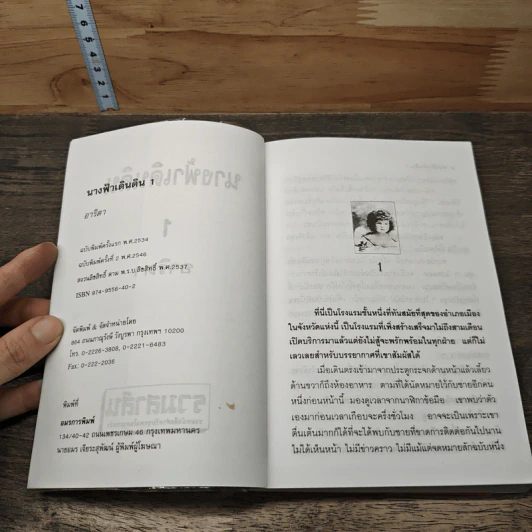 นางฟ้าเดินดิน 1
อาริตา
ฉบับพิมพ์ครั้งแรก พ.ศ.2534
ฉบับพิมพ์ครั้งที่ 2 พ.ศ.2546
สงวนลิขสิทธิ์ ตาม พ.ร.บ.ลิขสิทธิ์ พ.ศ.2537
ISBN 974-9556-40-2
จัดพิมพ์ & จัดจำหน่ายโดย
864 ถนนภาณุรังษี วังบูรพา กรุงเทพฯ 10200
โทร. 0-2226-3808, 0-2221-6483
Fax. 0-222-2036
รวมสาส์น
พิมพ์ที่
อมรการพิมพ์
134/40-42 ถนนเพชรเกษม 46 กรุงเทพมหานคร
นายอมร เจียระสุพัฒน์ ผู้พิมพ์ผู้โฆษณา
1
ที่นี่เป็นโรงแรมชั้นหนึ่งที่ทันสมัยที่สุดของอำเภอเมือง
ในจังหวัดแห่งนี้ เป็นโรงแรมที่เพิ่งสร้างเสร็จมาไม่ถึงสามเดือน
เปิดบริการมาแล้วแต่ยังไม่สู้จะพรักพร้อมในทุกฝ่าย แต่ก็ไม่
เลวเลยสำหรับบรรยากาศที่เขาสัมผัสได้
เมื่อเดินตรงเข้ามาจากประตูกระจกด้านหน้าแล้วเลี้ยว
ด้านขวาก็ถึงห้องอาหาร ตามที่ได้นัดหมายไว้กับชายอีกคน
หนึ่งก่อนหน้านี้ มองดูเวลาจากนาฬิกาข้อมือ เขาพบว่าตัว
เองมาก่อนเวลาเกือบจะครึ่งชั่วโมง อาจจะเป็นเพราะเขา
ตื่นเต้นมากก็ได้ที่จะได้พบกับชายที่ขาดการติดต่อกันไปนาน
ไม่ได้เห็นหน้า ไม่มีข่าวคราว ไม่มีแม้แต่จดหมายสักฉบับหนึ่ง
7 6 5 4 3 2 1